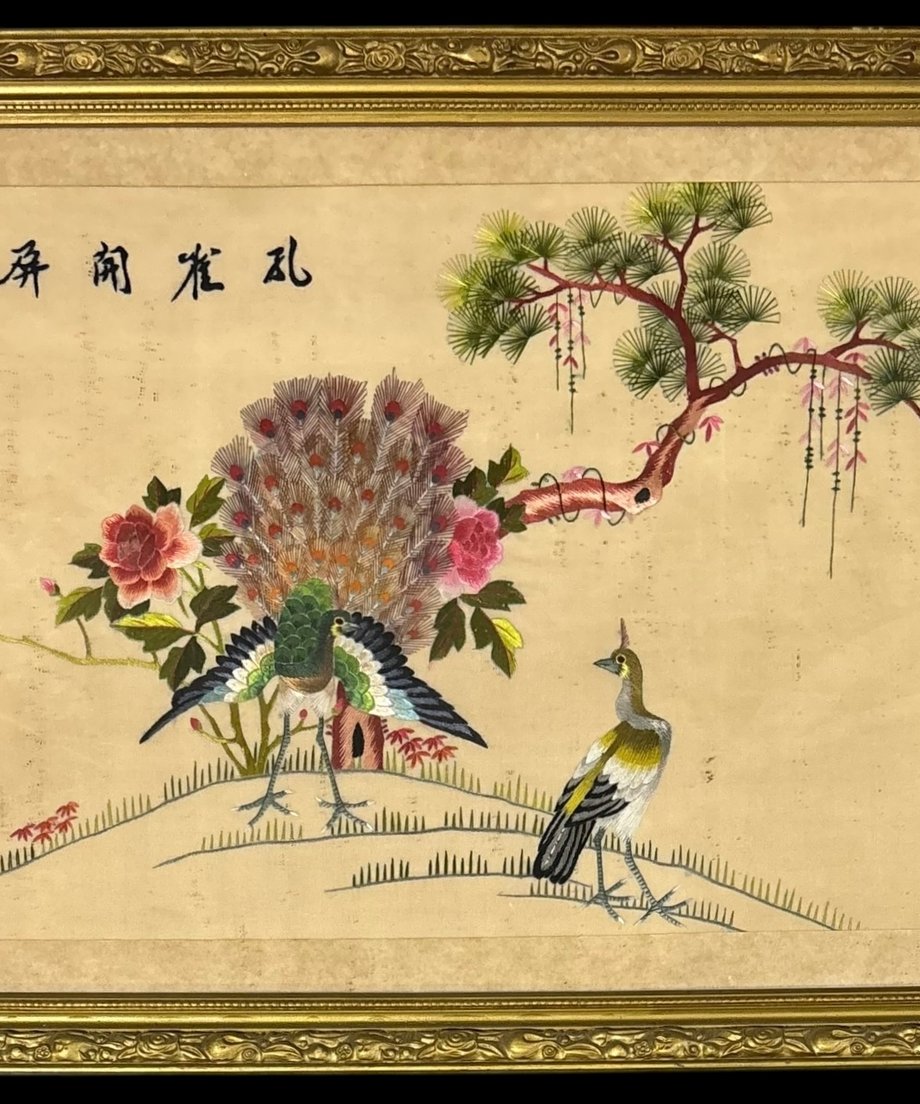 孔雀開屏